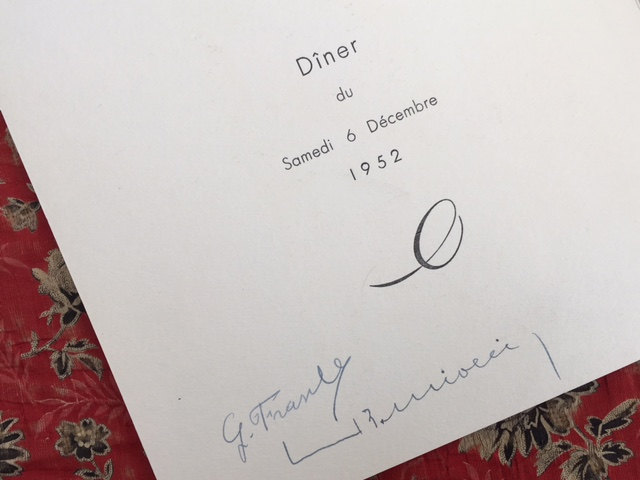 Dîner
du
Samedi 6 Décembre
1952
G.